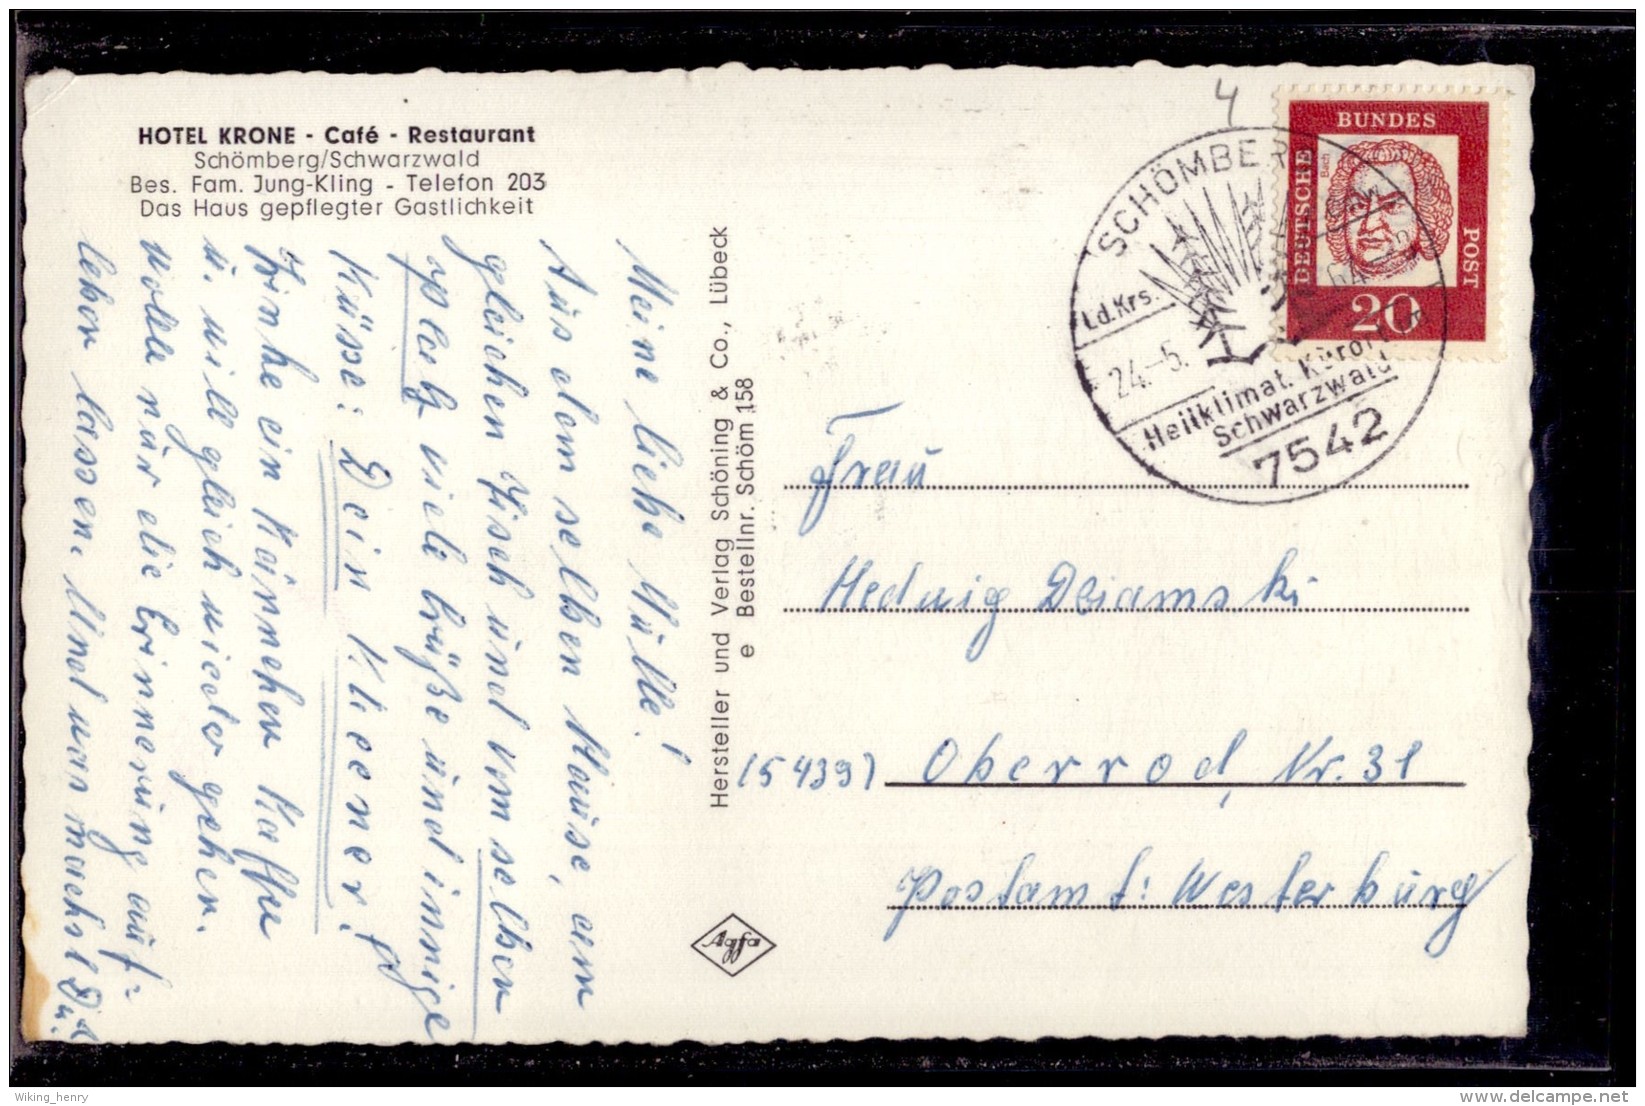 HOTEL KRONE - Café - Restaurant
Schömberg/Schwarzwald
Bes. Fam. Jung-Kling - Telefon 203
Das Haus gepflegter Gastlichkeit
Meine liebe Mülle!
Aus dem selben Hause, am
gleichen Tisch und vom selben
Platz viele Grüße und innige
Küsse: Dein Kleener!
Trinke ein Kännchen Kaffee
u. will gleich wieder gehen.
Wolle nur die Erinnerung auf=
leben lassen. Und was machst Du?
Hersteller und Verlag Schöning & Co., Lübeck
e Bestellnr. Schöm 158
Agfa
4
DEUTSCHE
BUNDES
POST
Bach
20
SCHÖMBERG
Ld.Krs.
24.-5.
64-12
Heilklimat. Kurort
Schwarzwald
7542
Frau
Hedwig
(5439) Oberrod, Nr. 31
Postamt: Westerburg
Wiking_henry
delcampe.net